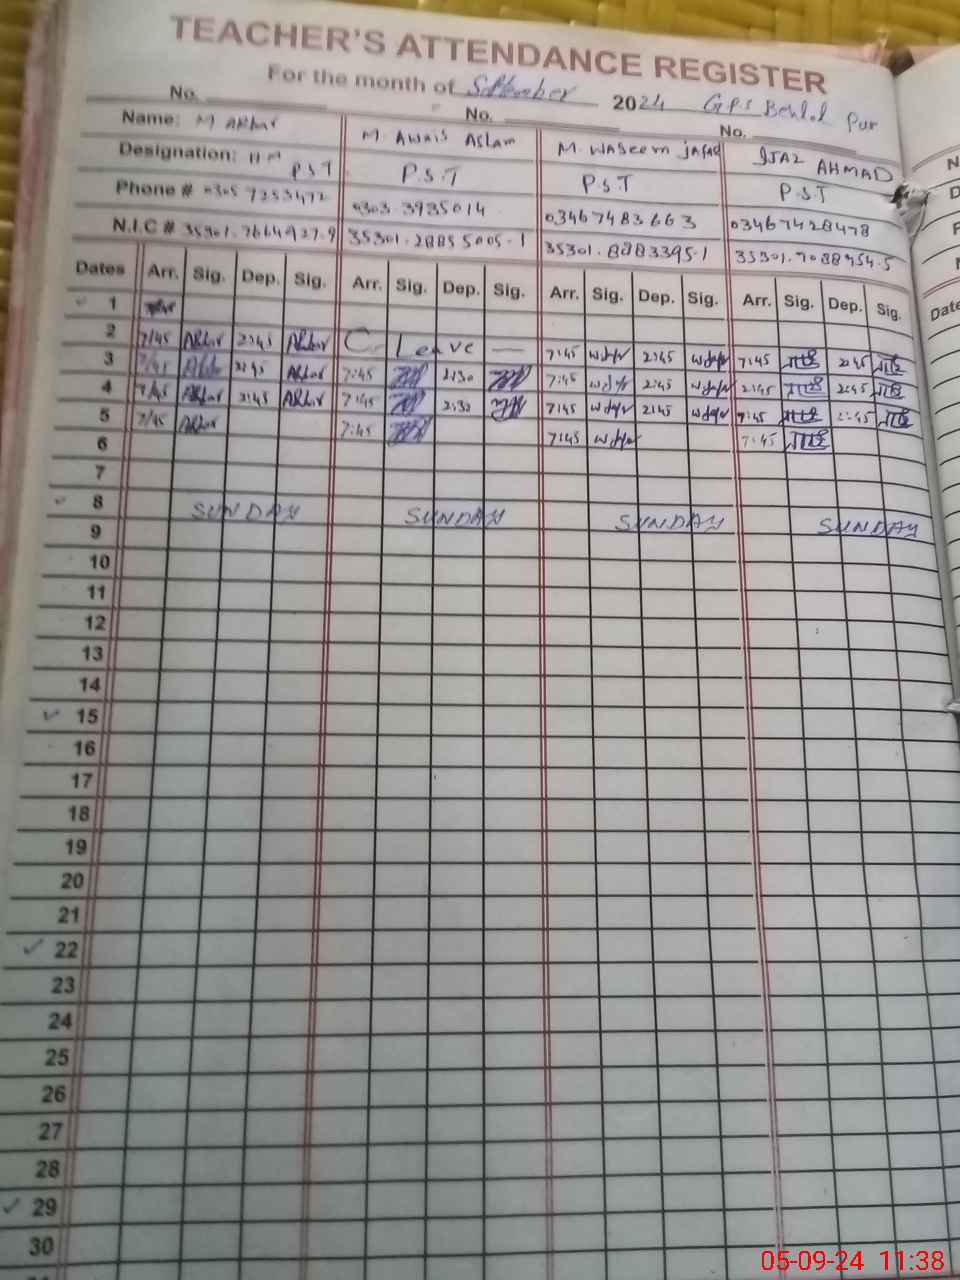 TEACHER'S ATTENDANCE REGISTER
For the month of September 2024 GPS Behlol Pur
No. No. No.
Name: M Akbar M. Awais Aslam M. Waseem Jafar IJAZ AHMAD
Designation: HM PST P.S.T P.S.T P.S.T
Phone # 0305 7253472 0303.3935014 03467483663 03467428478
N.I.C # 35301.7664927.9 35301.28855005.1 35301.8283395.1 35301.7088954.5
Dates Arr. Sig. Dep. Sig. Arr. Sig. Dep. Sig. Arr. Sig. Dep. Sig. Arr. Sig. Dep. Sig.
1
2 7/45 Akbar 2:45 Akbar C. Leave — 7:45 2:45 7:45 2:45
3 7/45 Akbar 2:45 Akbar 7:45 2:30 7:45 2:45 2:45 2:45
4 7/45 Akbar 2:45 Akbar 7:45 2:30 7:45 2:45 7:45 2:45
5 7/45 Akbar 7:45 7:45 7:45
6
7
8 SUNDAY SUNDAY SUNDAY SUNDAY
9
10
11
12
13
14
15
16
17
18
19
20
21
22
23
24
25
26
27
28
29
30
Date
05-09-24 11:38